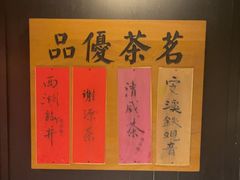 茗茶優品
安溪鐵觀音
清咸茶
謝源茶
西湖龍井